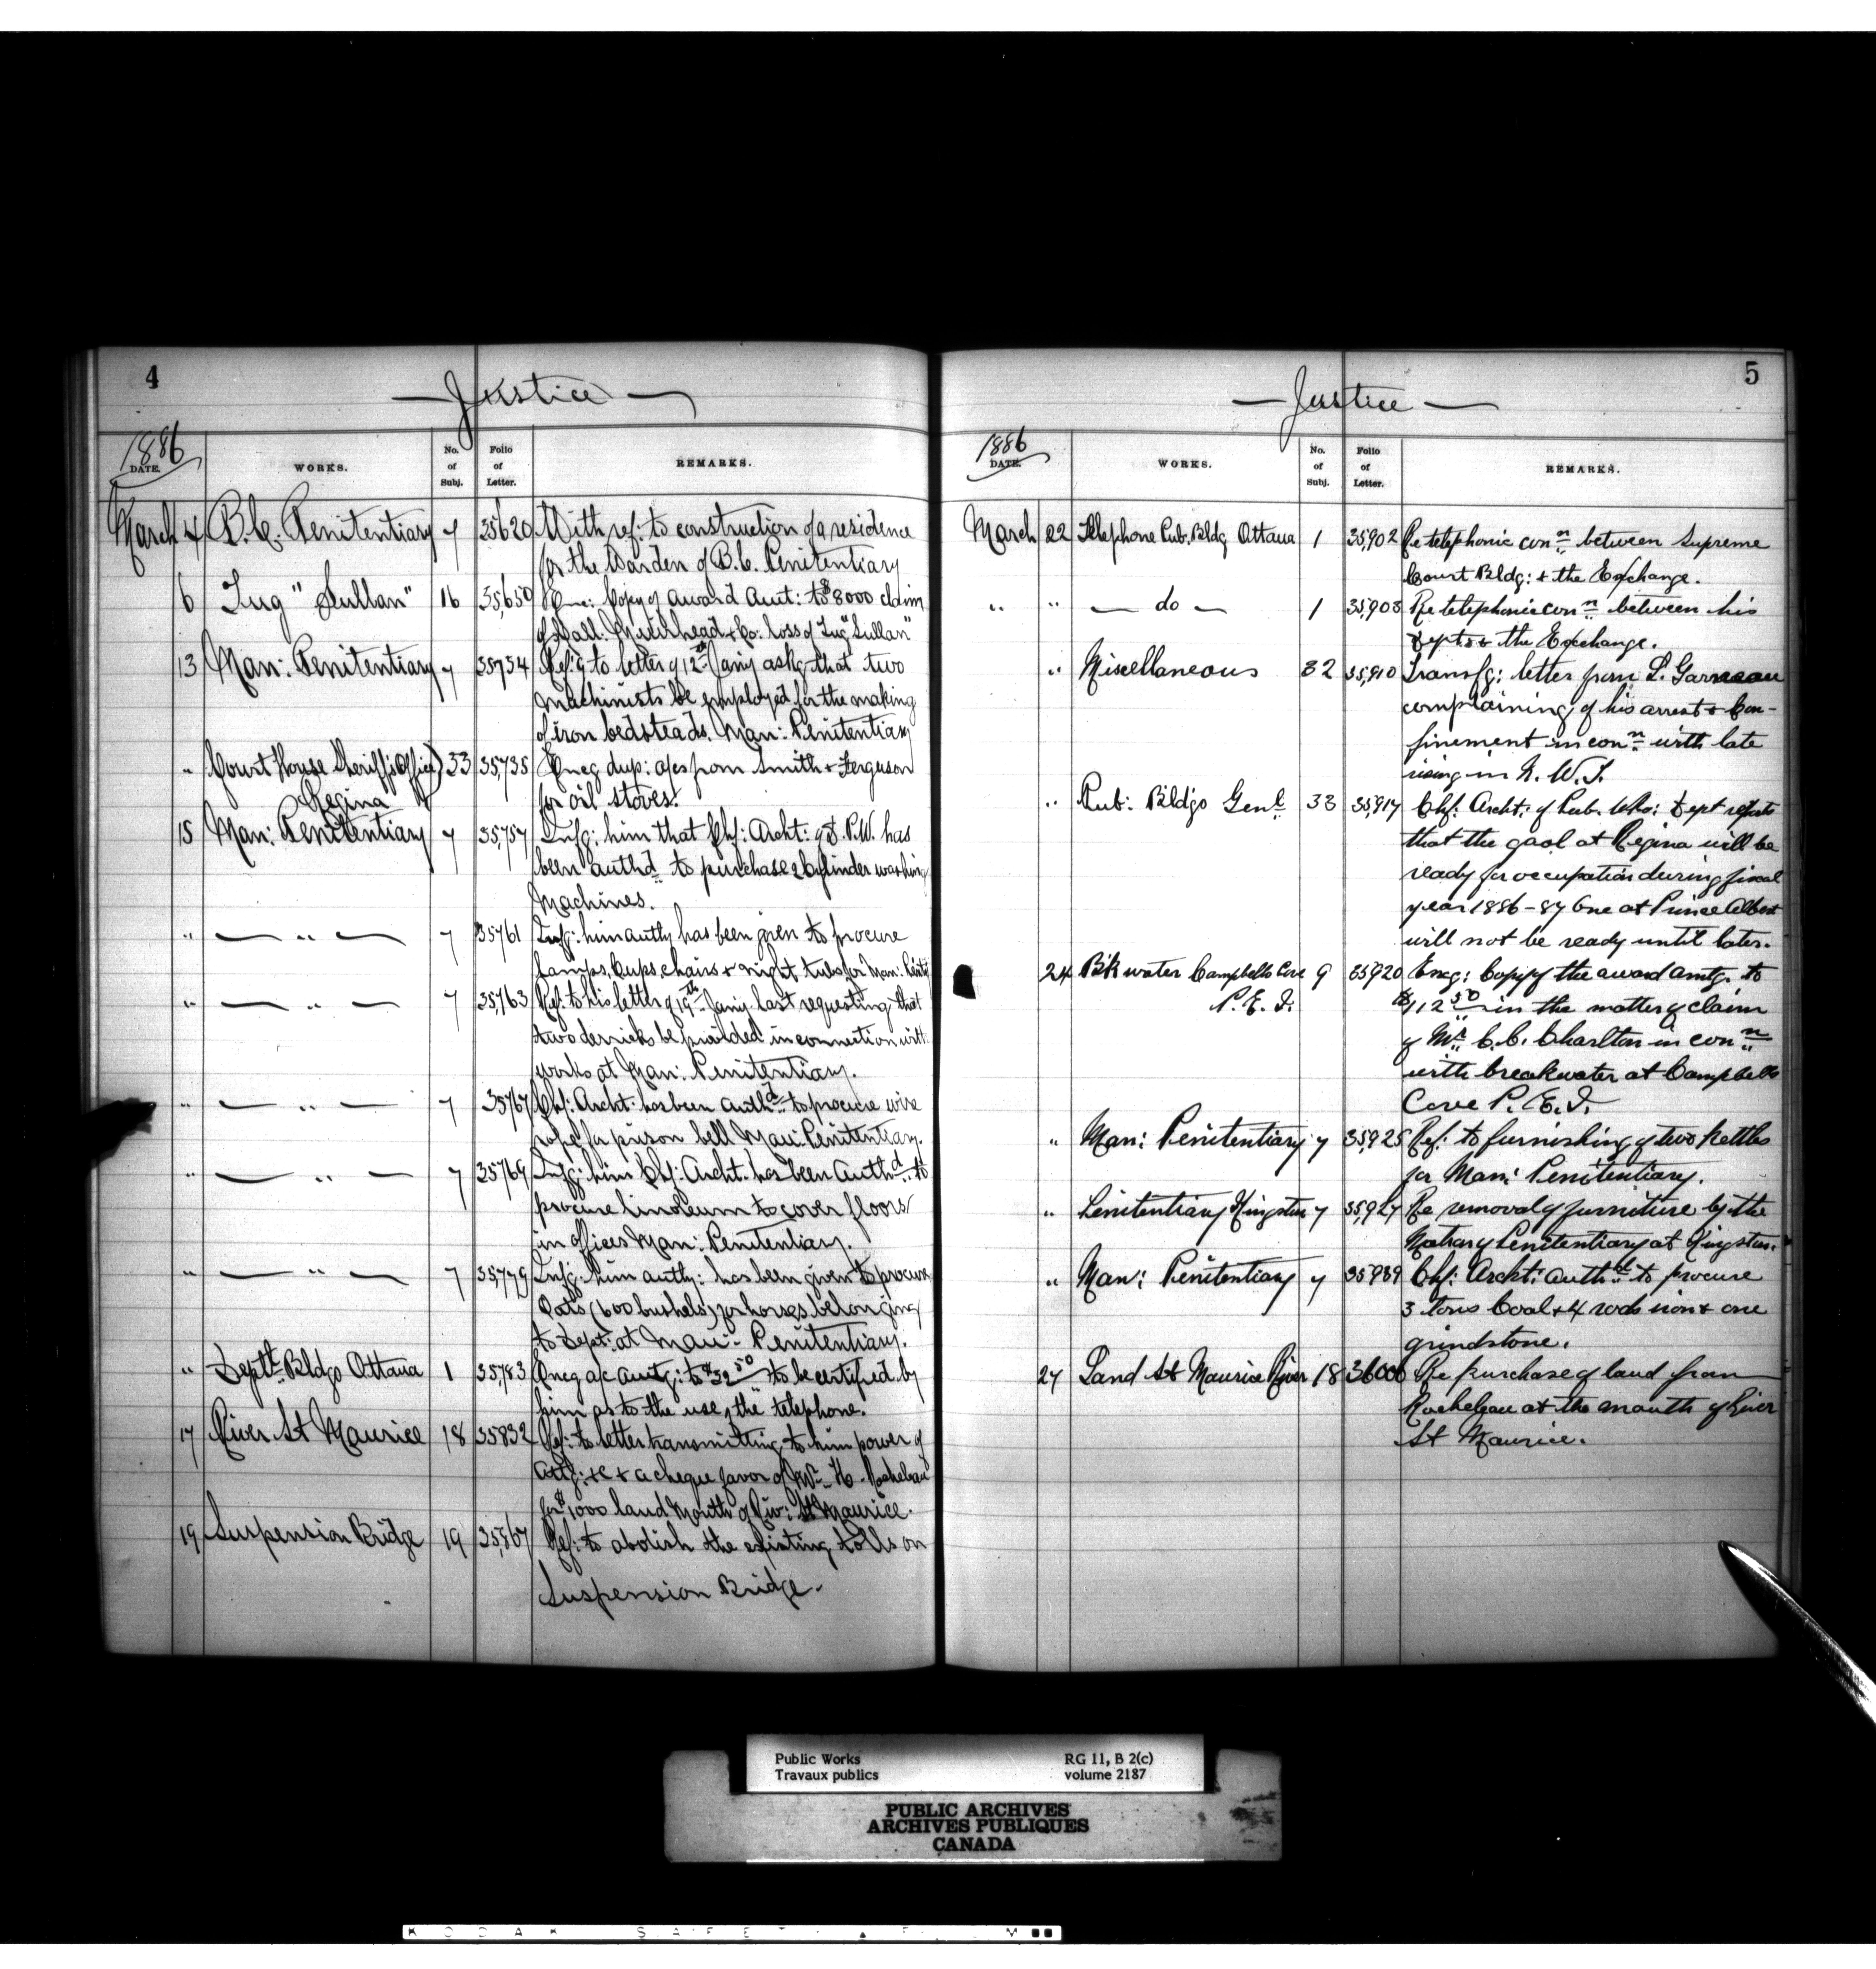 4
— Justice —
1886
DATE.
WORKS.
No. of Subj.
Folio of Letter.
REMARKS.
March 4 B.C. Penitentiary 7 35620 With ref: to construction of a residence
for the Warden of B.C. Penitentiary
6 Tug "Sultan" 16 35,650 Copy of award Amt: to $8000 claim
of Hall: Muirhead & Co: loss of Tug "Sultan"
13 Man: Penitentiary 7 35734 Ref:g to letter of 12th Jany askg that two
machinists be employed for the making
of iron bedsteads. Man: Penitentiary
" Court House Sheriff's Office) 33 35,735 Encg dup: a/cs from Smith & Ferguson
Regina for oil stoves.
15 Man: Penitentiary 7 35,757 Infg: him that Chf: Archt: of D.P.W. has
been authd to purchase 2 Cylinder washing
Machines.
" — " — 7 35761 Infg: him authy has been given to procure
Lamps, Cups, chairs & night tubs for Man: Penty
" — " — 7 35,763 Ref. to his letter of 19th Jany last requesting that
two derricks be provided in connection with
works at Man: Penitentiary.
" — " — 7 35767 Chf: Archt. has been authd to procure wire
rope for prison bell Man: Penitentiary.
" — " — 7 35769 Infg: him Chf: Archt. has been Authd to
procure linoleum to cover floors
in offices Man: Penitentiary.
" — " — 7 35,779 Infg: him authy: has been given to procure
Oats (600 bushels) for horses belonging
to Dept: at Man: Penitentiary.
" Deptl Bldgs Ottawa 1 35,783 Encg a/c amtg: to $32 50 to be certified by
him as to the use, "the" telephone.
17 River St Maurice 18 35832 Ref: to letter transmitting to him power of
Atty: &c & a cheque favor of H. Rocheleau
for $1000 land Mouth of Riv: St Maurice.
19 Suspension Bridge 19 35,867 Ref: to abolish the existing tolls on
Suspension Bridge.
5
— Justice —
1886
DATE.
WORKS.
No. of Subj.
Folio of Letter.
REMARKS.
March 22 Telephone Pub. Bldg Ottawa 1 35,902 Re telephonic conn between Supreme
Court Bldg: & the Exchange.
" " — do — 1 35,903 Re telephonic conn between his
Dept & the Exchange.
" Miscellaneous 32 35,910 Transfg: letter from L. Garneau
complaining of his arrest & Con-
finement in conn with late
rising in N. W. T.
" Pub: Bldgs Genl 33 35,917 Chf: Archt: of Pub. Wks: Dept reports
that the gaol at Regina will be
ready for occupation during fiscal
year 1886-87 One at Prince Albert
will not be ready until later.
24 Bk water Campbells Cove 9 35920 Encg: Copy of the award amtg. to
P. E. I. $112 50 in the matter of claim
of Mr C. C. Charlton in conn
with breakwater at Campbells
Cove P. E. I.
" Man: Penitentiary 7 35,925 Ref: to furnishing of two kettles
for Man: Penitentiary.
" Penitentiary Kingston 7 35,927 Re removal of furniture by the
Matron of Penitentiary at Kingston.
" Man: Penitentiary 7 35,939 Chf: Archt: authd to procure
3 tons Coal & 4 rods iron & one
grindstone.
27 Land St Maurice River 18 36000 Re purchase of land from
Rocheleau at the mouth of River
St Maurice.
Public Works
Travaux publics
RG 11, B 2(c)
volume 2187
PUBLIC ARCHIVES
ARCHIVES PUBLIQUES
CANADA